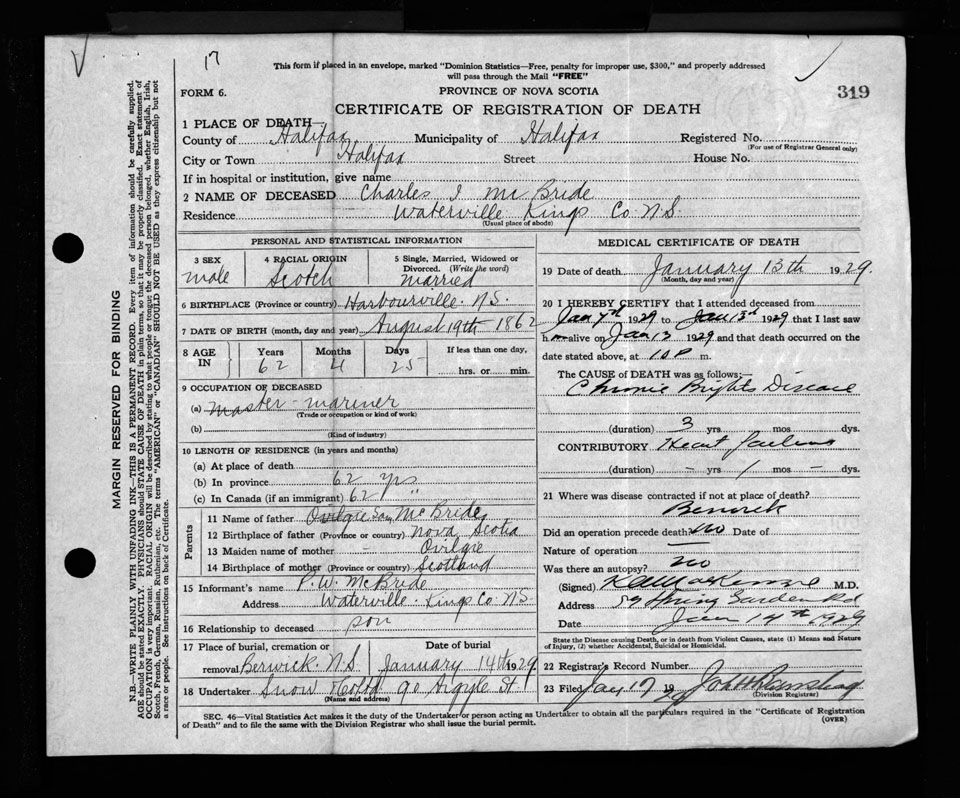 17
This form if placed in an envelope, marked "Dominion Statistics—Free, penalty for improper use, $300," and properly addressed
will pass through the Mail "FREE"
FORM 6.
PROVINCE OF NOVA SCOTIA
319
CERTIFICATE OF REGISTRATION OF DEATH
1 PLACE OF DEATH—
County of Halifax Municipality of Halifax Registered No.
(For use of Registrar General only)
City or Town Halifax Street House No.
If in hospital or institution, give name
2 NAME OF DECEASED Charles I McBride
Residence Waterville Kings Co N.S.
(Usual place of abode)
PERSONAL AND STATISTICAL INFORMATION
3 SEX 4 RACIAL ORIGIN 5 Single, Married, Widowed or
Divorced. (Write the word)
male Scotch married
6 BIRTHPLACE (Province or country) Harbourville N.S.
7 DATE OF BIRTH (month, day and year) August 19th 1862
8 AGE IN Years Months Days If less than one day,
62 4 25 hrs. or min.
9 OCCUPATION OF DECEASED
(a) master-mariner
(Trade or occupation or kind of work)
(b)
(Kind of industry)
10 LENGTH OF RESIDENCE (in years and months)
(a) At place of death
(b) In province 62 yrs
(c) In Canada (if an immigrant) 62 "
Parents
11 Name of father McBride
12 Birthplace of father (Province or country) Nova Scotia
13 Maiden name of mother — Ovilgie
14 Birthplace of mother (Province or country) Scotland
15 Informant's name P. W. McBride
Address Waterville Kings Co N.S.
16 Relationship to deceased son
17 Place of burial, cremation or Date of burial
removal Berwick N.S. January 14th 1929
18 Undertaker Snow & Co Ltd 90 Argyle St
(Name and address)
MEDICAL CERTIFICATE OF DEATH
19 Date of death January 13th 1929.
(Month, day and year)
20 I HEREBY CERTIFY that I attended deceased from
Jan 7th 1929 to Jan 13th 1929 that I last saw
him alive on Jan 13 1929 and that death occurred on the
date stated above, at 10 P m.
The CAUSE OF DEATH was as follows:—
Chronic Brights Disease
(duration) 3 yrs mos dys.
CONTRIBUTORY Heart failure
(duration) – yrs 1 mos – dys.
21 Where was disease contracted if not at place of death?
Berwick
Did an operation precede death no Date of
Nature of operation —
Was there an autopsy? no
(Signed) MacKenzie M.D.
Address 59 Spring Garden Rd
Date Jan 14th 1929
State the Disease causing Death, or in death from Violent Causes, state (1) Means and Nature
of Injury, (2) whether Accidental, Suicidal or Homicidal.
22 Registrar's Record Number
23 Filed Jan 17 19
(Division Registrar)
SEC. 46—Vital Statistics Act makes it the duty of the Undertaker or person acting as Undertaker to obtain all the particulars required in the "Certificate of Registration
of Death" and to file the same with the Division Registrar who shall issue the burial permit.
(OVER)
MARGIN RESERVED FOR BINDING
N.B.—WRITE PLAINLY WITH UNFADING INK—THIS IS A PERMANENT RECORD. Every item of information should be carefully supplied.
AGE should be stated EXACTLY. PHYSICIANS should STATE CAUSE OF DEATH in plain terms, so that it may be properly classified. Exact statement of
OCCUPATION is very important. RACIAL ORIGIN will be described by stating to what people or tongue the deceased person belonged, whether English, Irish,
Scotch, French, German, Russian, Ruthenian, etc. The terms "AMERICAN" or "CANADIAN" SHOULD NOT BE USED as they express citizenship but not
a race or people. See instructions on back of Certificate.